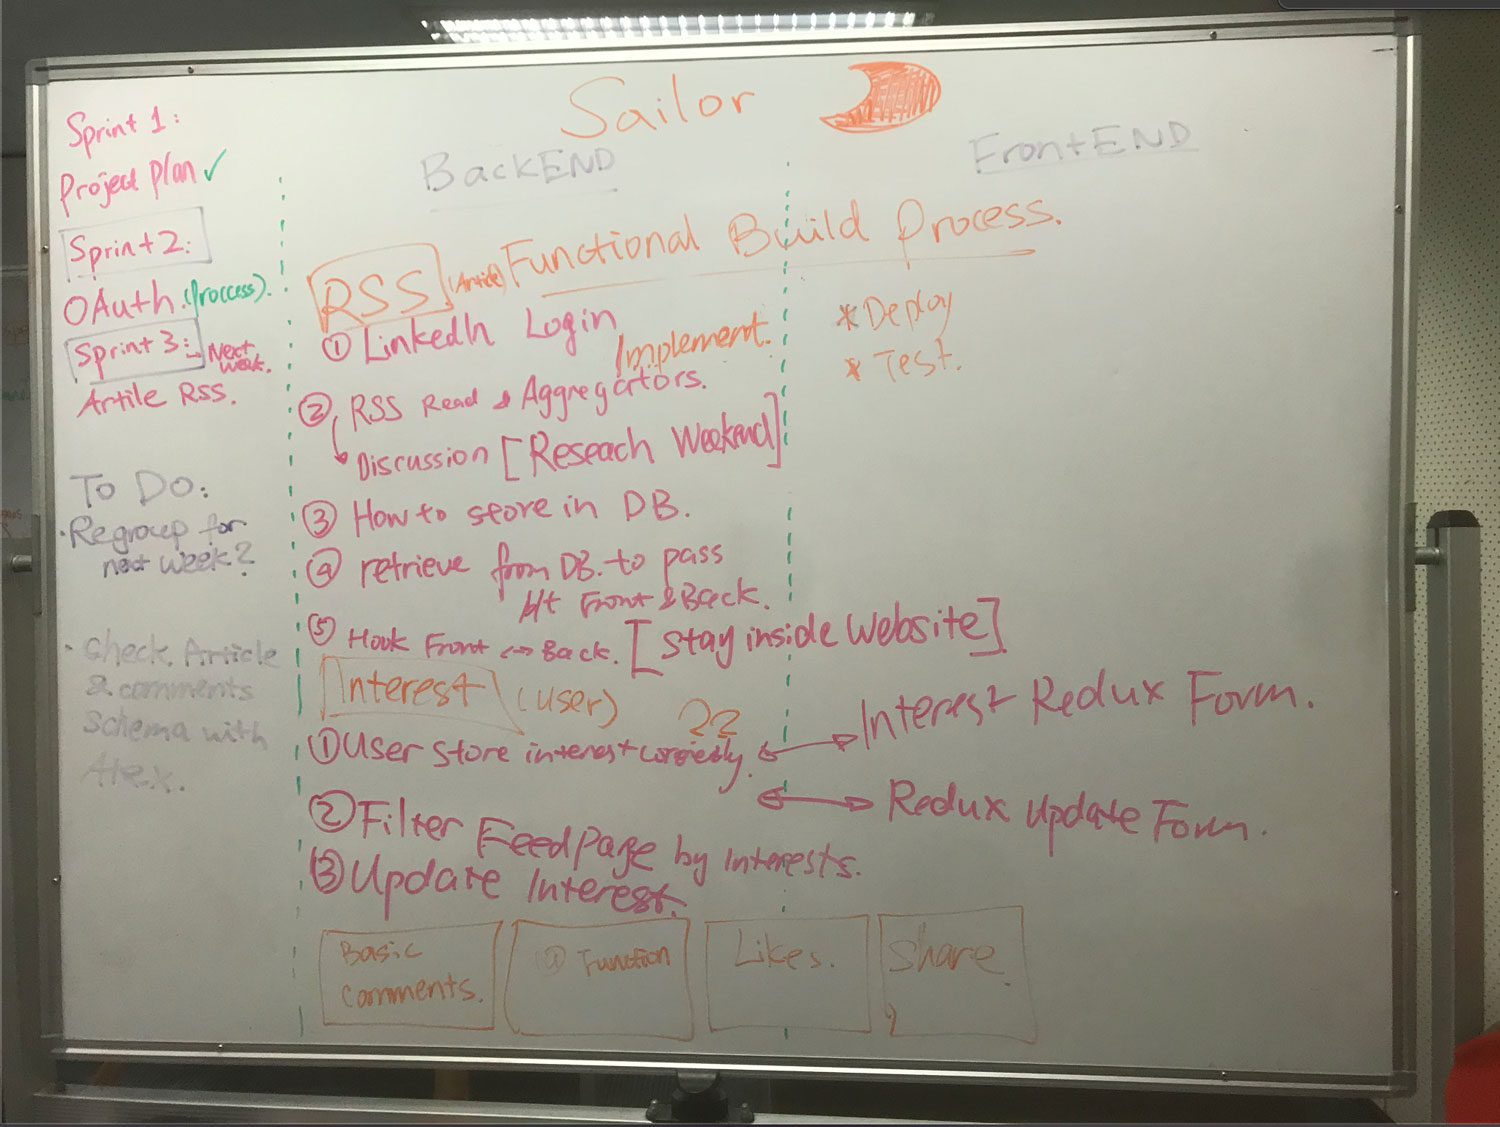 Sailor
Sprint 1:
Project plan ✓
Sprint 2:
OAuth. (Proccess).
Sprint 3: → Next
week.
Artile RSS.
To Do:
· Regroup for
next week?
· Check Article
& comments
Schema with
Alex.
BackEND
FrontEND
Functional Build Process.
RSS (Article)
① LinkedIn Login
Implement.
② RSS Read & Aggregators.
Discussion [Reseach Weekend]
③ How to store in DB.
④ retrieve from DB. to pass
Front & Back.
⑤ Hook Front ↔ Back. [Stay inside Website]
* Deploy
* Test.
Interest (user) ??
① User Store interest correctly. ↔ Interest Redux Form.
↔ Redux Update Form.
② Filter FeedPage by Interests.
③ Update Interest.
Basic
Comments.
Function
Likes.
Share.